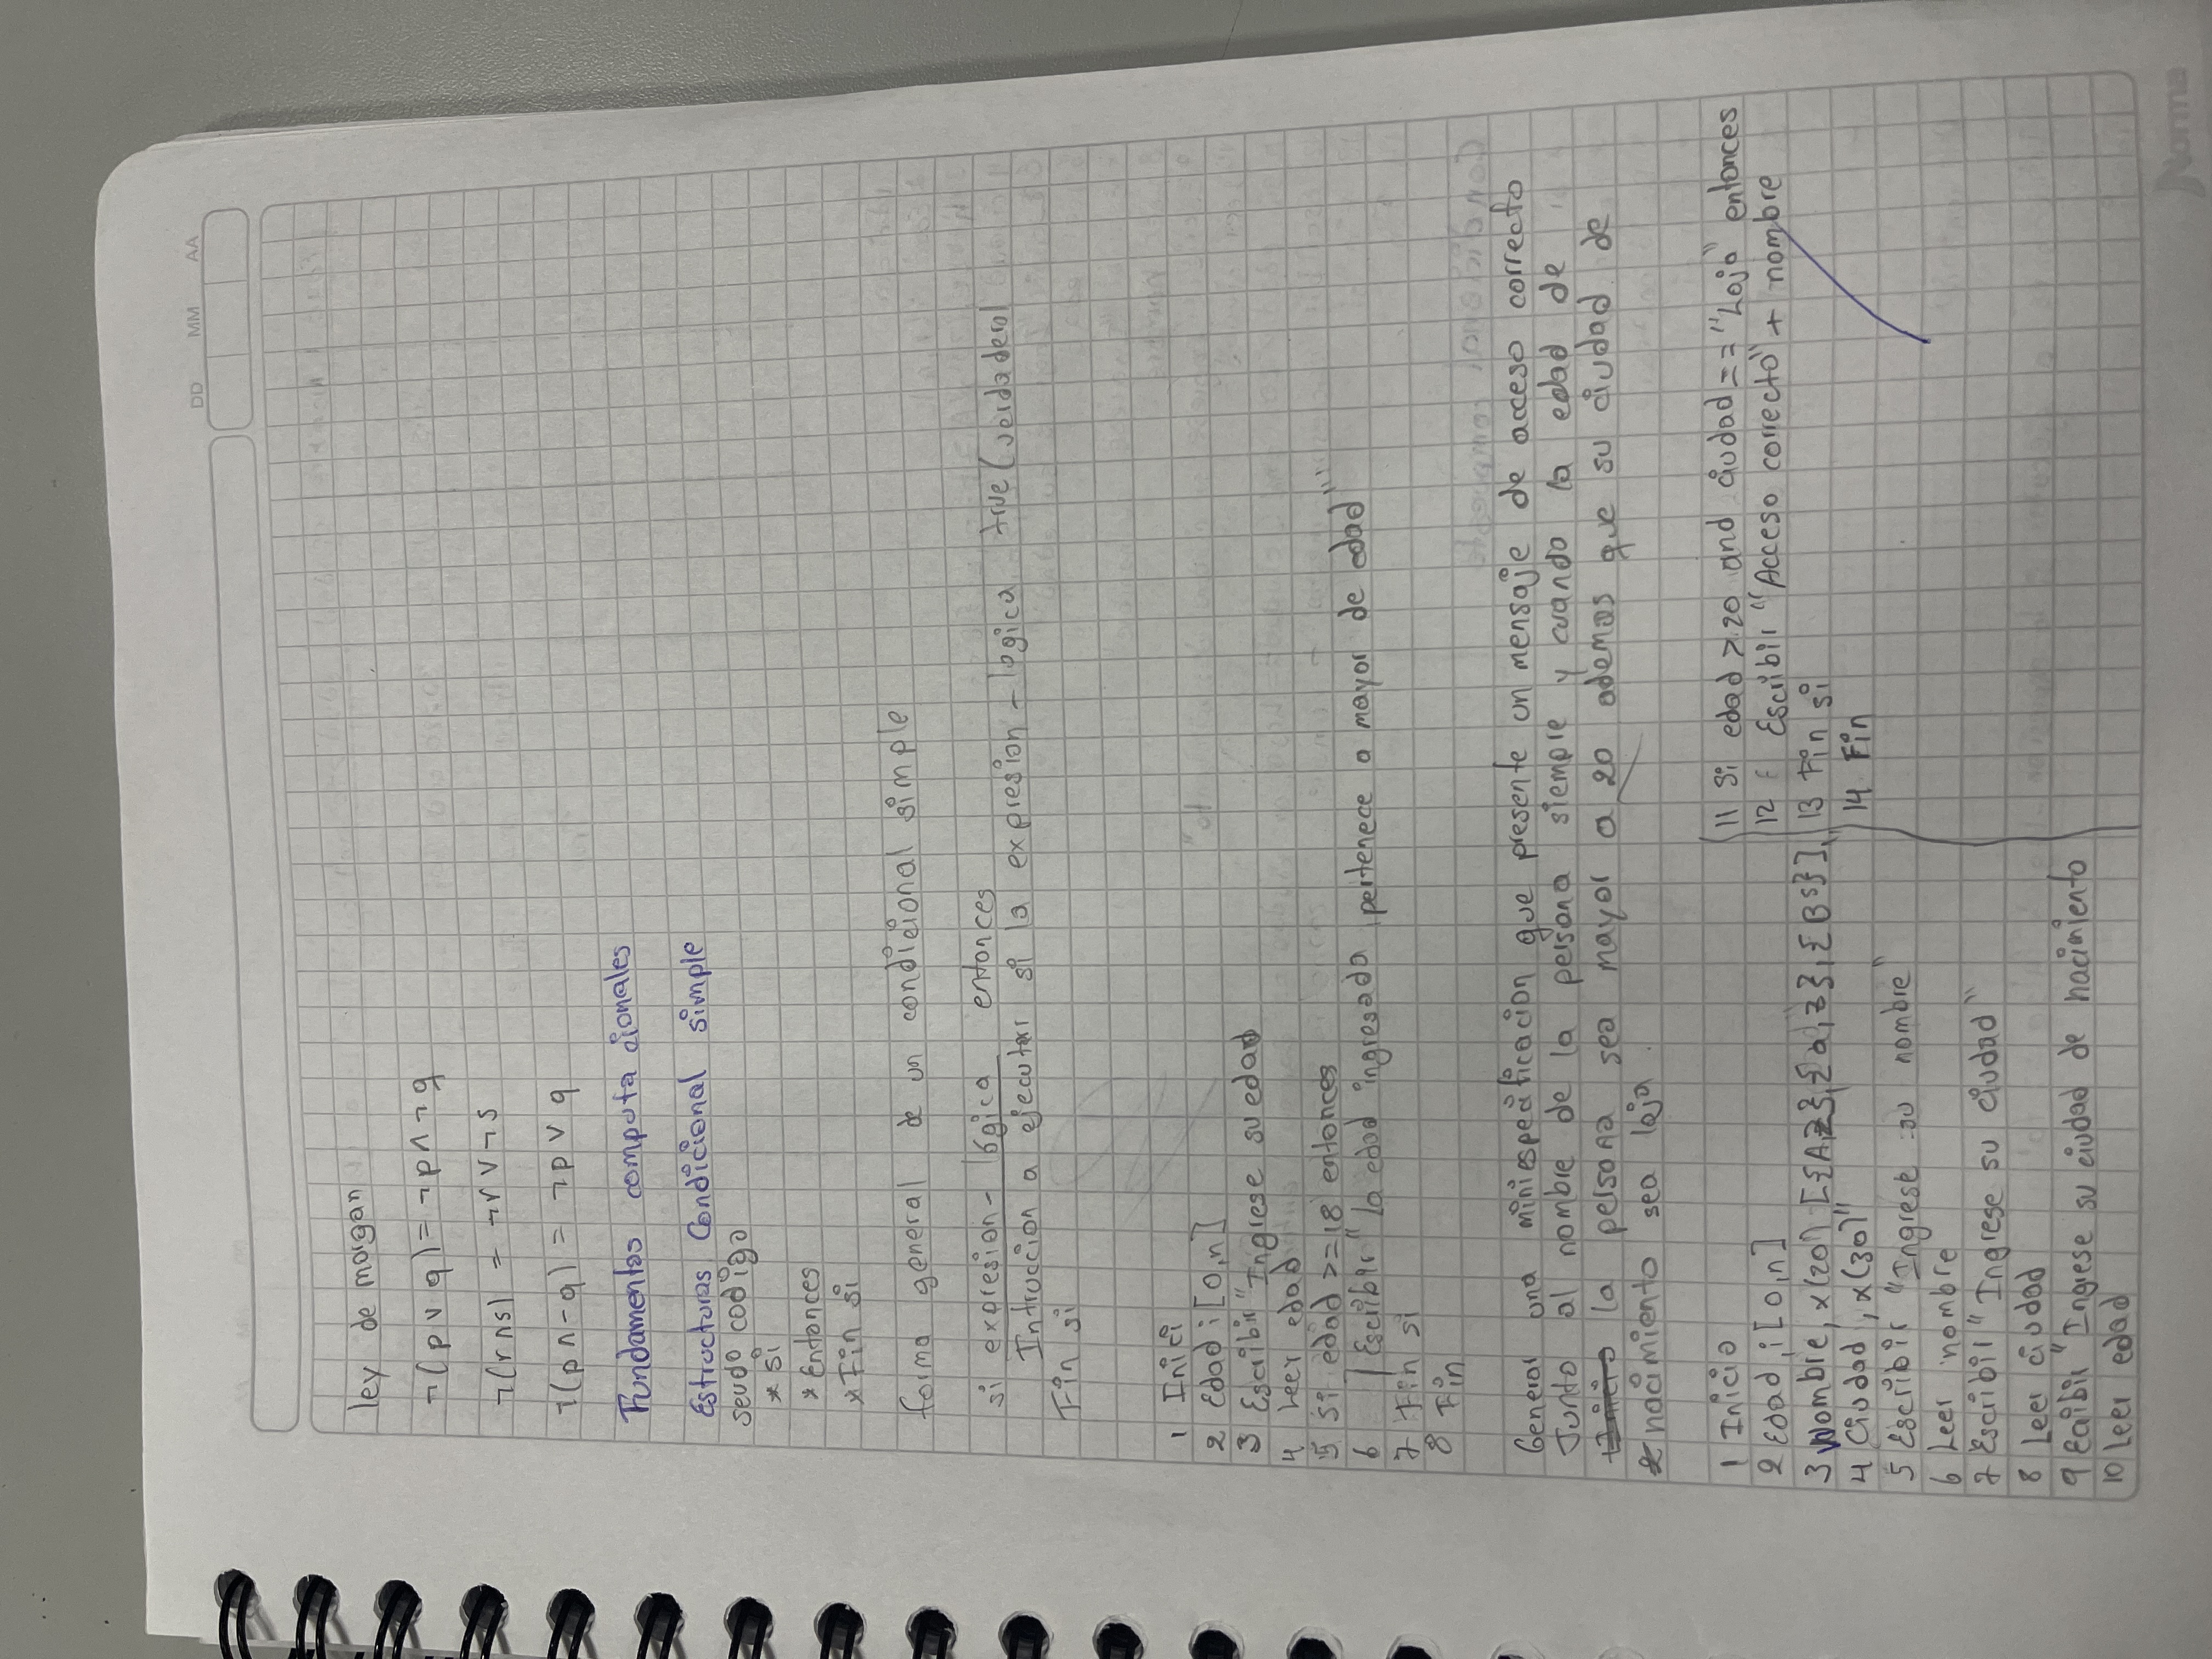 DD MM AA
ley de morgan
¬(p ∨ q) = ¬p ∧ ¬q
¬(r ∧ s) = ¬r ∨ ¬s
¬(p ∧ -q) = ¬p ∨ q
Fundamentos computacionales
Estructuras Condicional simple
seudo codigo
* si
* Entonces
* Fin si
forma general de un condicional simple
si expresion-logica entonces
Intruccion a ejecutar si la expresion-logica true (verdadero)
Fin si
1 Inici
2 Edad i [0,n]
3 Escribir "Ingrese su edad
4 Leer edad
5 Si edad >=18 entonces
6 Escribir "la edad ingresada pertenece a mayor de edad"
7 Fin si
8 Fin
Generar una miniespecificacion que presente un mensaje de acceso correcto
Junto al nombre de la persona siempre y cuando la edad de
la persona sea mayor a 20 ademas que su ciudad de
nacimiento sea loja.
1 Inicio
2 Edad, i [0,n]
3 Nombre, x(20) [{A,Z},{a,z},{Bs}],
4 Ciudad, x(30)"
5 Escribir "Ingrese su nombre"
6 Leer nombre
7 Escribir "Ingrese su ciudad"
8 Leer ciudad
9 Ecibir "Ingrese su ciudad de nacimiento
10 Leer edad
11 Si edad >20 and ciudad == "Loja" entonces
12 Escribir "Acceso correcto" + nombre
13 Fin si
14 Fin
Norma